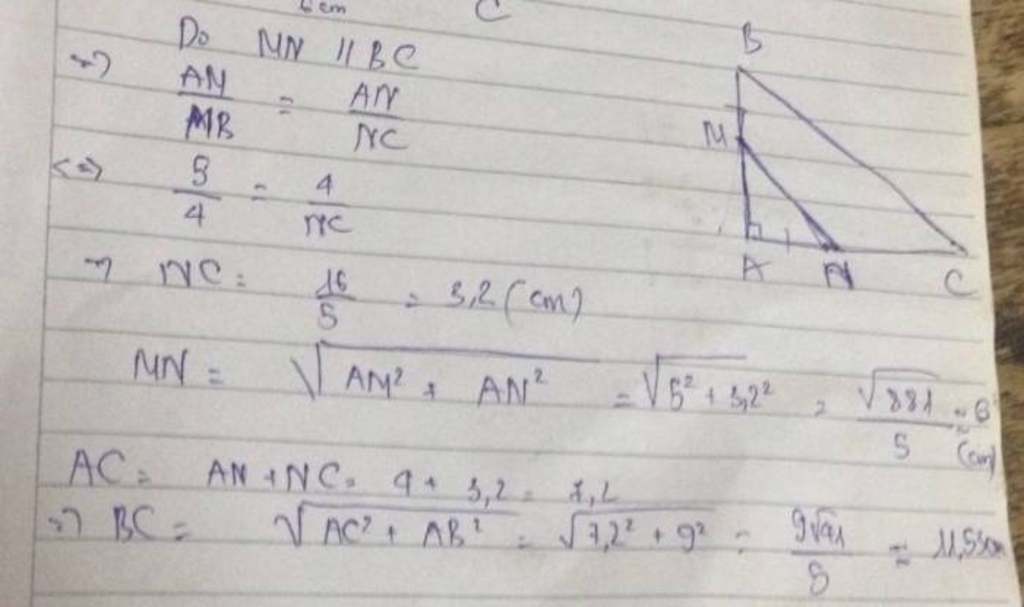 6cm C
Do MN // BC
=> AM/MB = AN/NC
<=> 5/4 = 4/NC
=> NC = 16/5 = 3,2 (cm)
MN = √(AM² + AN²) = √(5² + 3,2²) = √881/5 ≈ 6 (cm)
AC = AN + NC = 4 + 3,2 = 7,2
=> BC = √(AC² + AB²) = √(7,2² + 9²) = 9√41/5 ≈ 11,53cm
B
M
A N C